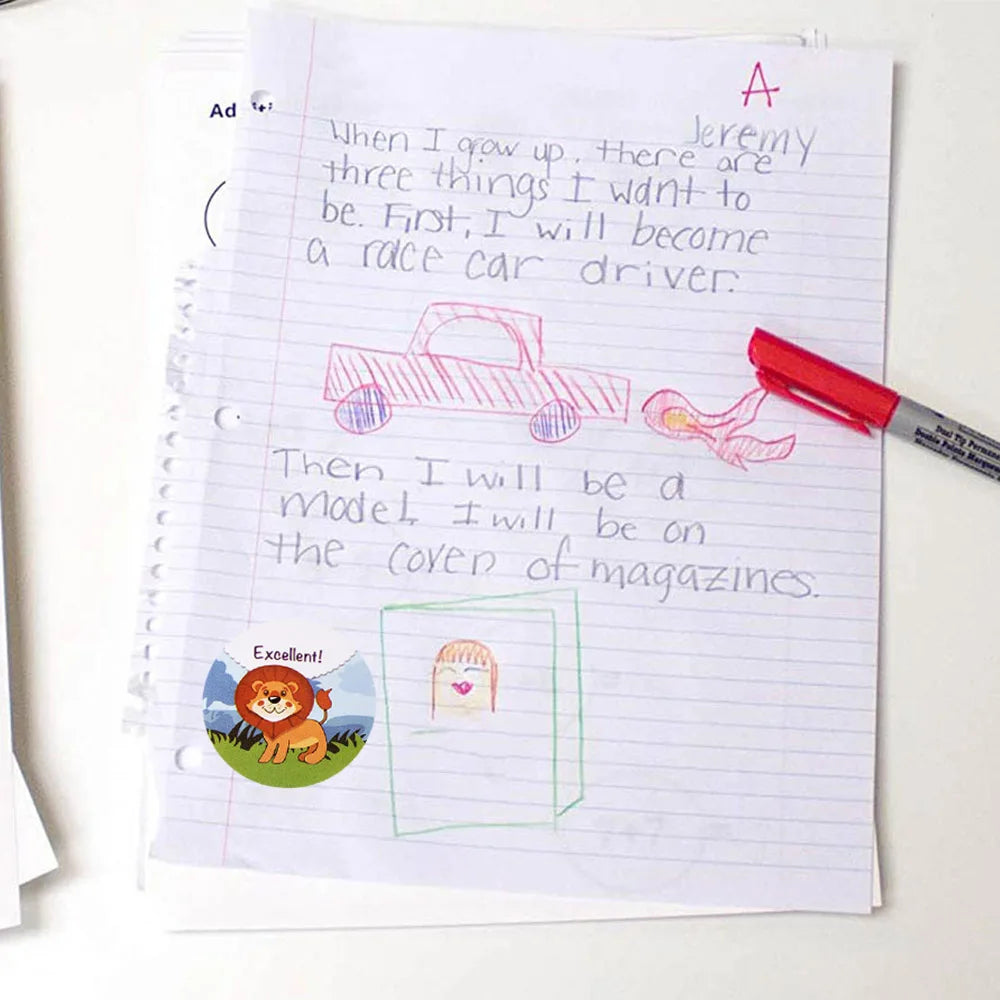 A
Jeremy
Ad
When I grow up, there are
three things I want to
be. First, I will become
a race car driver.
Then I will be a
model, I will be on
the cover of magazines.
Excellent!
Dual Tip Permanent